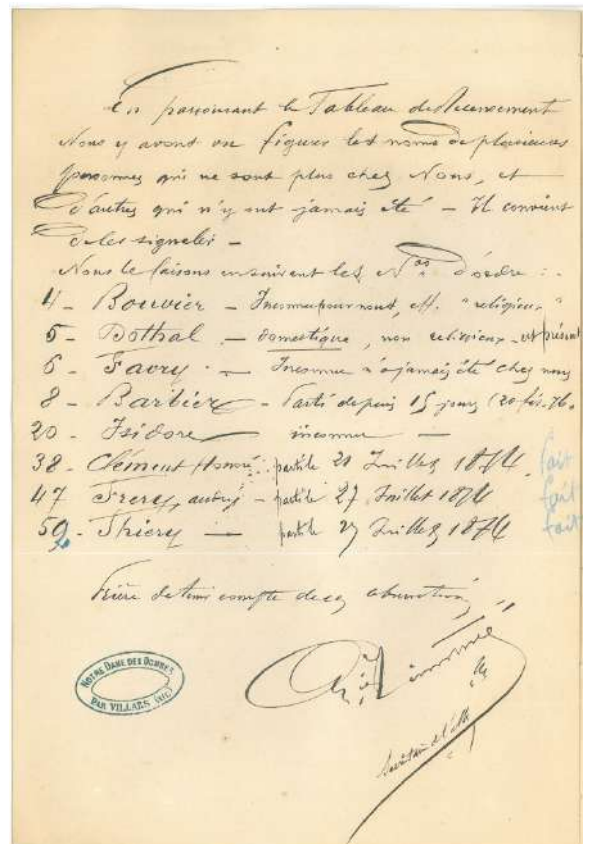 En parcourant le Tableau de Recensement
Nous y avons vu figurer les noms de plusieurs
personnes qui ne sont plus chez Nous, et
d'autres qui n'y ont jamais été – Il convient
de les signaler –
Nous le faisons en suivant les Nos d'ordre :
4 – Bouvier – Inconnu pour nous, "religieux"
5 – Dothal – domestique, non religieux – est présent
6 – Favry – Inconnu n'a jamais été chez nous
8 – Barbier – Parti depuis 15 jours (20 fév. 76.
20 – Isidore – inconnu –
38 – Clément Honoré parti le 21 Juillet 1874. fait
47 – Frery, – parti le 27 Juillet 1874 fait
50 – Thiery – parti le 27 Juillet 1874 fait
Prière de tenir compte de ces
NOTRE DAME DES DOMBES
PAR VILLARS (AIN)